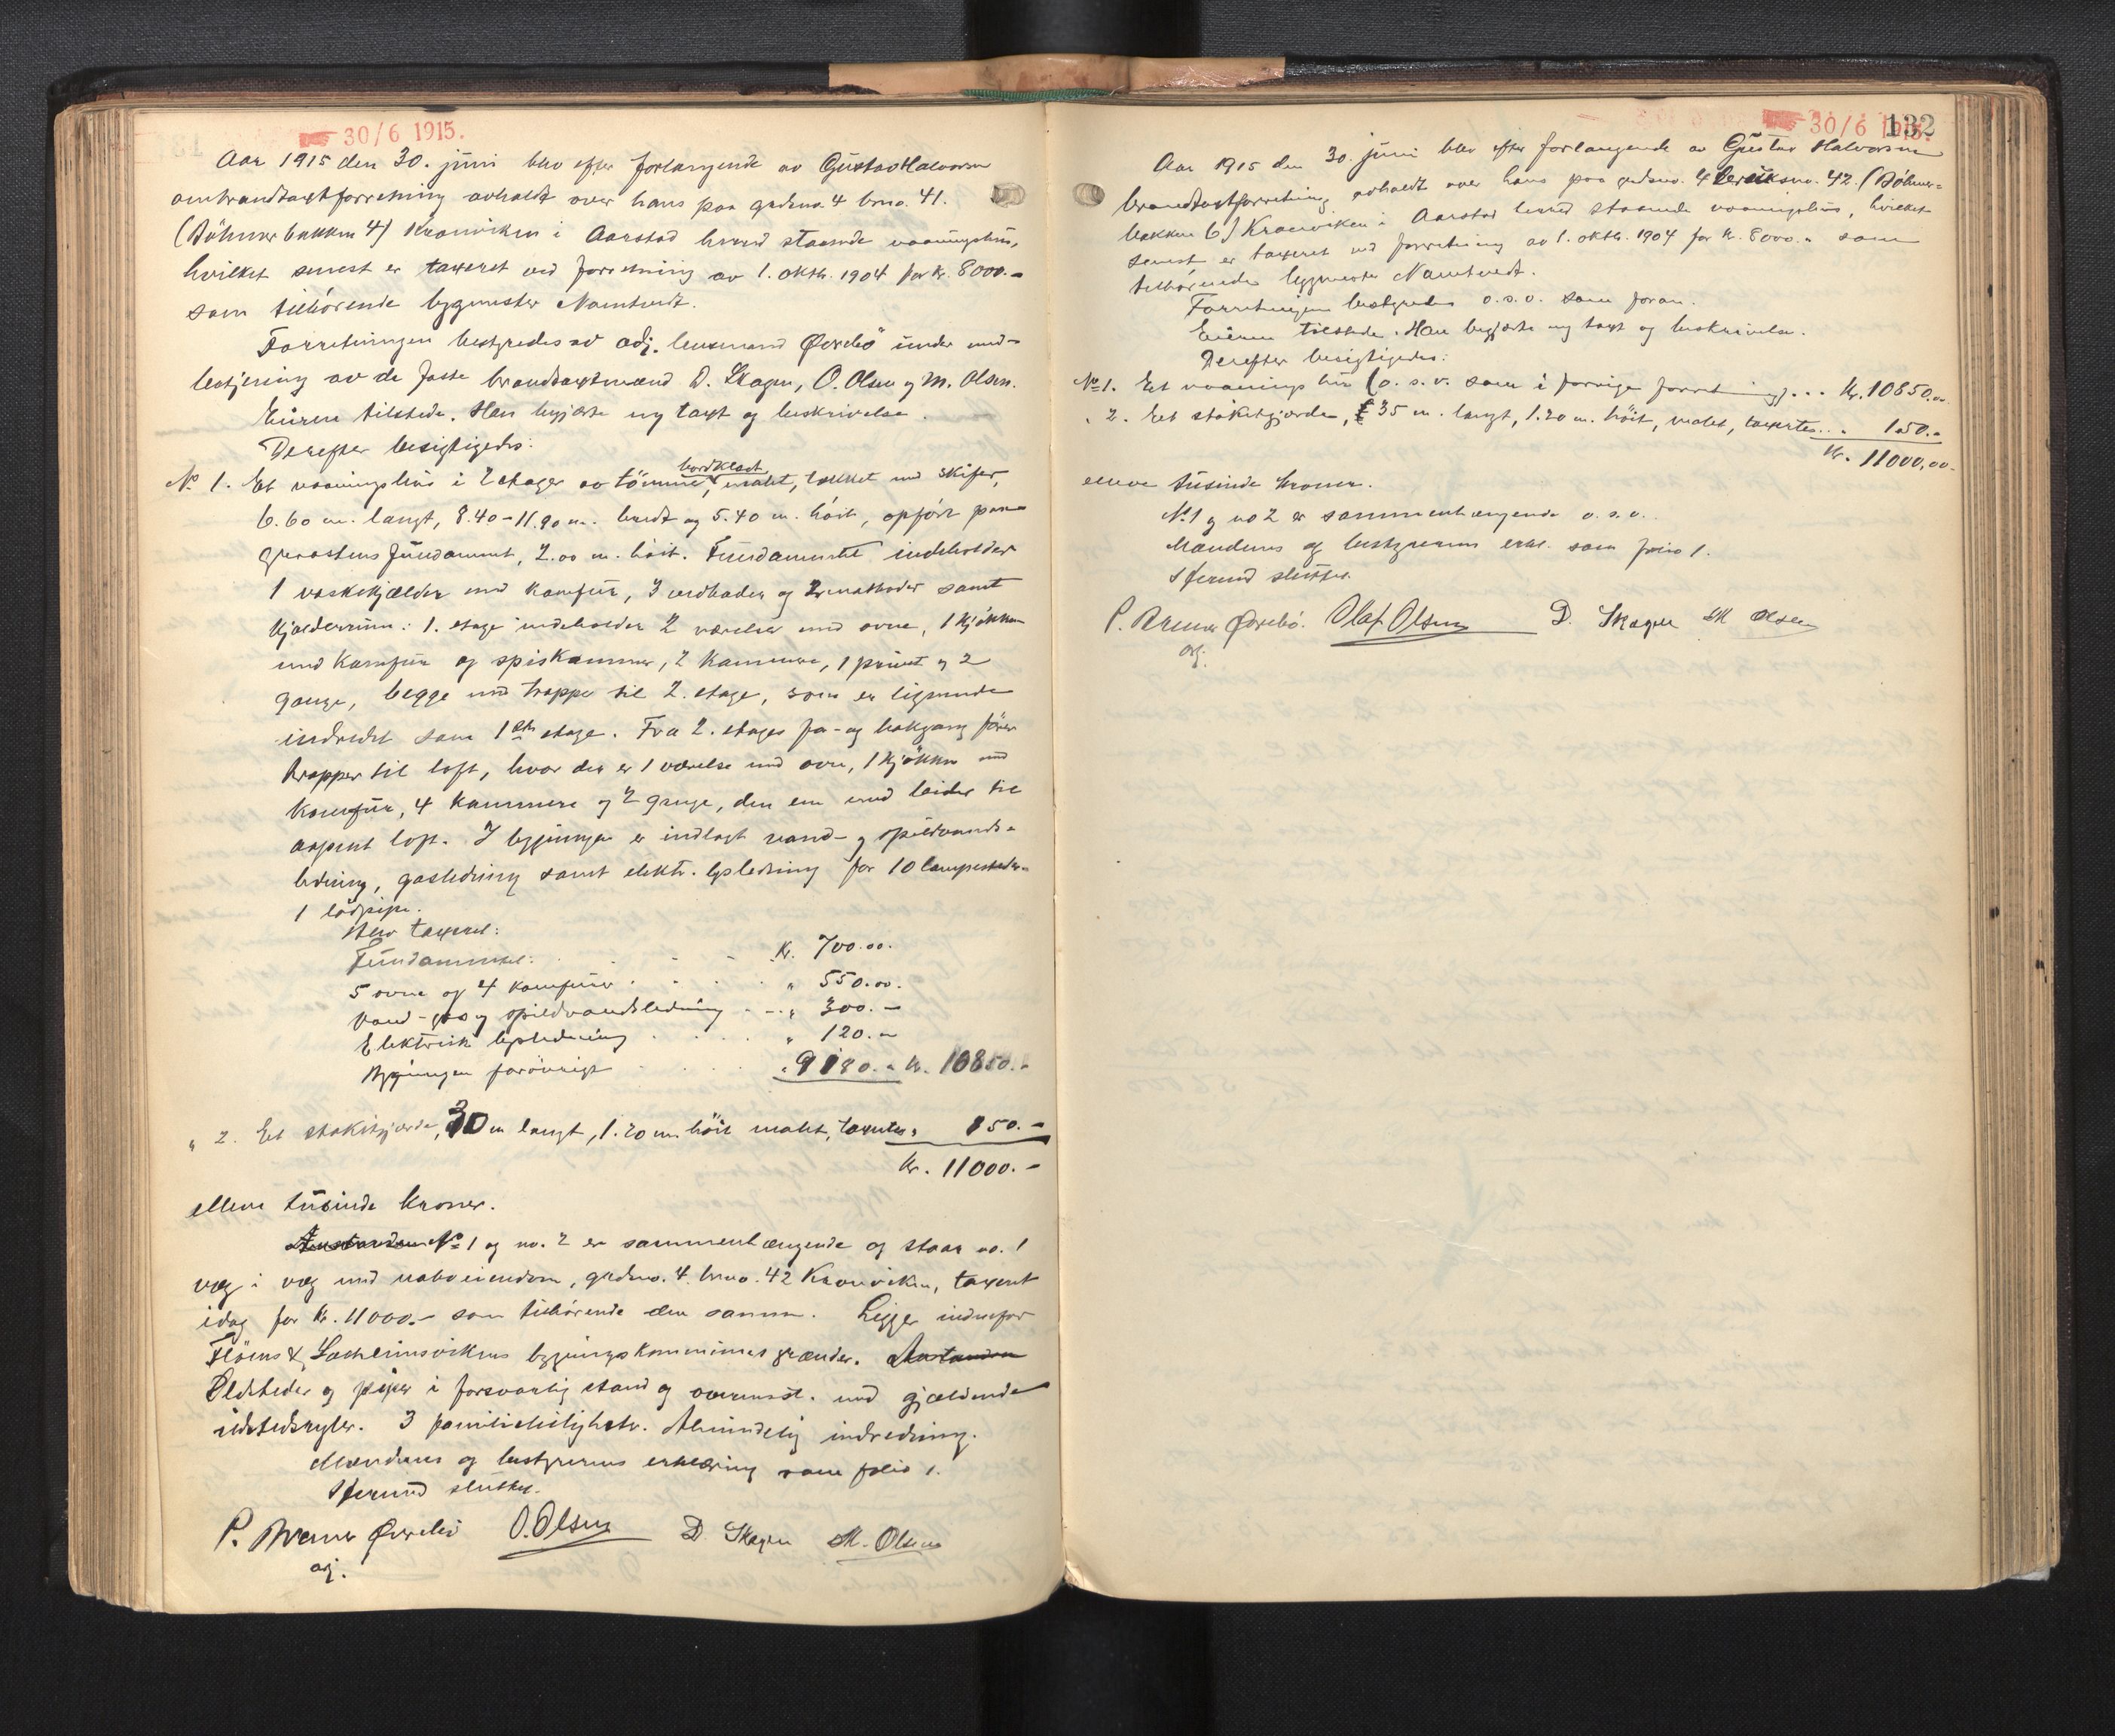 30/6 1915.
Aar 1915 den 30. juni blev efter forlangende av Gustav Halvorsen
ombrandtaxtforretning avholdt over hans paa gardsno. 4 brno. 41.
(Böhmerbakken 4) Kronviken i Aarstad herred staaende vaaningshus,
hvilket senest er taxeret ved forretning av 1. oktbr. 1904 for kr. 8000.-
som tilhörende bygmester Namtvedt.
Forretningen bestyredes av adj. lensmand Øvrebö under med-
betjening av de faste brandtaxtmænd D. Skagen, O. Olsen og M. Olsen.
Eieren tilstede. Han begjærte ny taxt og beskrivelse.
Derefter besigtigedes:
No 1. Et vaaningshus i 2 etager av tömmer, bordklædt, malet, tækket med skifer,
6.60 m. langt, 8.40-11.90 m. bredt og 5.40 m. höit, opfört paa
graastens fundament, 2.00 m. höit. Fundamentet indeholder
1 vaskekjælder med komfur, 3 vedboder og 2 matboder samt
kjælderrum. 1. etage indeholder 2 værelser med ovne, 1 kjökken
med komfur og spiskammer, 2 kammere, 1 privet og 2
gange, begge med trappe til 2. etage, som er lignende
indredet som 1ste etage. Fra 2. etages for- og bakgang förer
trapper til loft, hvor der er 1 værelse med ovn, 1 kjökken med
komfur, 4 kammere og 2 gange, den ene med leider til
aapent loft. I bygningen er indlagt vand- og spildvands-
ledning, gasledning samt elektr. lysledning for 10 lampesteder.
1 lödpipe.
Blev taxeret:
Fundamentet: . . - - kr. 700.00.
5 ovne og 4 komfurer . . . . " 550.00.
Vand- gas og spildvandsledning . - . " 300.-
Elektrisk lysledning . . . . " 120.-
Bygningen forövrigt . . . . " 9180.- kr. 10850.-
" 2. Et stakitgjærde, 30 m langt, 1.20 m. höit malet, taxertes " 150.-
kr. 11000.-
elleve tusinde kroner.
No 1 og no. 2 er sammenhængende og staar no. 1
væg i væg med naboeiendom, gardsno. 4. brno. 42 Kronviken, taxeret
idag for kr. 11000.- som tilhörende den samme. Ligger indenfor
Flöens & Solheimsvikens bygningskommunes grændser.
Ildsteder og piper i forsvarlig stand og overensst. med gjældende
ildstedsregler. 3 familieleiligheter. Almindelig indredning.
Mændenes og bestyrerens erklæring som folio 1.
Hermed sluttet.
P. Werner Øvrebö O. Olsen D. Skagen M. Olsen
adj.
30/6 1915.
132
Aar 1915 den 30. juni blev efter forlangende av Gustav Halvorsen
brandtaxtforretning avholdt over hans paa gardsno. 4 bruksno. 42. (Böhmer-
bakken 6) Kronviken i Aarstad herred staaende vaaningshus, hvilket
senest er taxeret ved forretning av 1. oktbr. 1904 for kr. 8000.- som
tilhörende bygmester Namtvedt.
Forretningen bestyredes o.s.v. som foran.
Eieren tilstede. Han begjærte ny taxt og beskrivelse.
Derefter besigtigedes:
No 1. Et vaaningshus (o.s.v. som i forrige forretning) . . . kr. 10850.-
" 2. Et stakitgjærde, 35 m. langt, 1.20 m. höit, malet, taxertes . . . 150.-
kr. 11000,00-
elleve tusinde kroner.
No 1 og no 2 er sammenhængende o.s.v.
Mændenes og bestyrerens erkl. som folio 1.
Hermed sluttet.
P. Werner Øvrebö. Olaf Olsen D. Skagen M Olsen
adj.